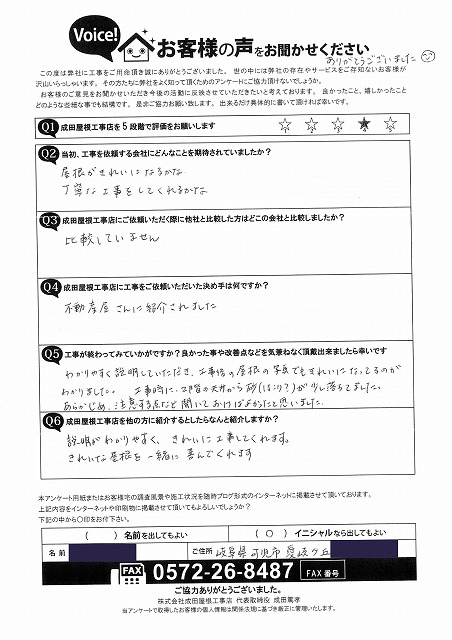 Voice!
お客様の声をお聞かせください
ありがとうございました
この度は弊社に工事をご用命頂き誠にありがとうございました。 世の中には弊社の存在やサービスをご存知ないお客様が
沢山いらっしゃいます。その方たちに弊社をよく知って頂くためのアンケートにご協力頂けないでしょうか。
お客様のご意見をお聞かせいただき今後の活動に反映させていただきたいと考えております。 良かったこと、嬉しかったこと
どのような些細な事でも結構です。 是非ご協力お願い致します。 出来るだけ具体的に書いて頂ければ幸いです。
Q1 成田屋根工事店を5段階で評価をお願いします ☆ ☆ ☆ ★ ☆
Q2 当初、工事を依頼する会社にどんなことを期待されていましたか?
屋根がきれいになるかな
丁寧な工事をしてくれるかな
Q3 成田屋根工事店にご依頼いただく際に他社と比較した方はどこの会社と比較しましたか?
比較していません
Q4 成田屋根工事店に工事をご依頼いただいた決め手は何ですか?
不動産屋さんに紹介されました
Q5 工事が終わってみていかがですか?良かった事や改善点などを気兼ねなく頂戴出来ましたら幸いです
わかりやすく説明していただき、工事後の屋根の写真でもきれいになってるのが
わかりました。 工事時に、2階の天井から砂(ほこり?)が少し落ちてました。
あらかじめ、注意する点など聞いておけばよかったと思いました。
Q6 成田屋根工事店を他の方に紹介するとしたらなんと紹介しますか?
説明がわかりやすく、きれいに工事してくれます。
きれいな屋根を一緒に喜んでくれます
本アンケート用紙またはお客様宅の調査風景や施工状況を随時ブログ形式のインターネットに掲載させて頂いております。
上記内容をインターネットや印刷物に掲載させて頂いてもよろしいでしょうか?
下記の中から〇印をお付下さい。
( ) 名前を出してもよい
( 〇 ) イニシャルなら出してもよい
名前
ご住所 岐阜県可児市愛岐ケ丘
FAX 0572-26-8487 FAX番号
ご協力ありがとうございました。
株式会社成田屋根工事店 代表取締役 成田篤孝
当アンケートで取得したお客様の個人情報は関係法規に基づき厳正に管理いたします。